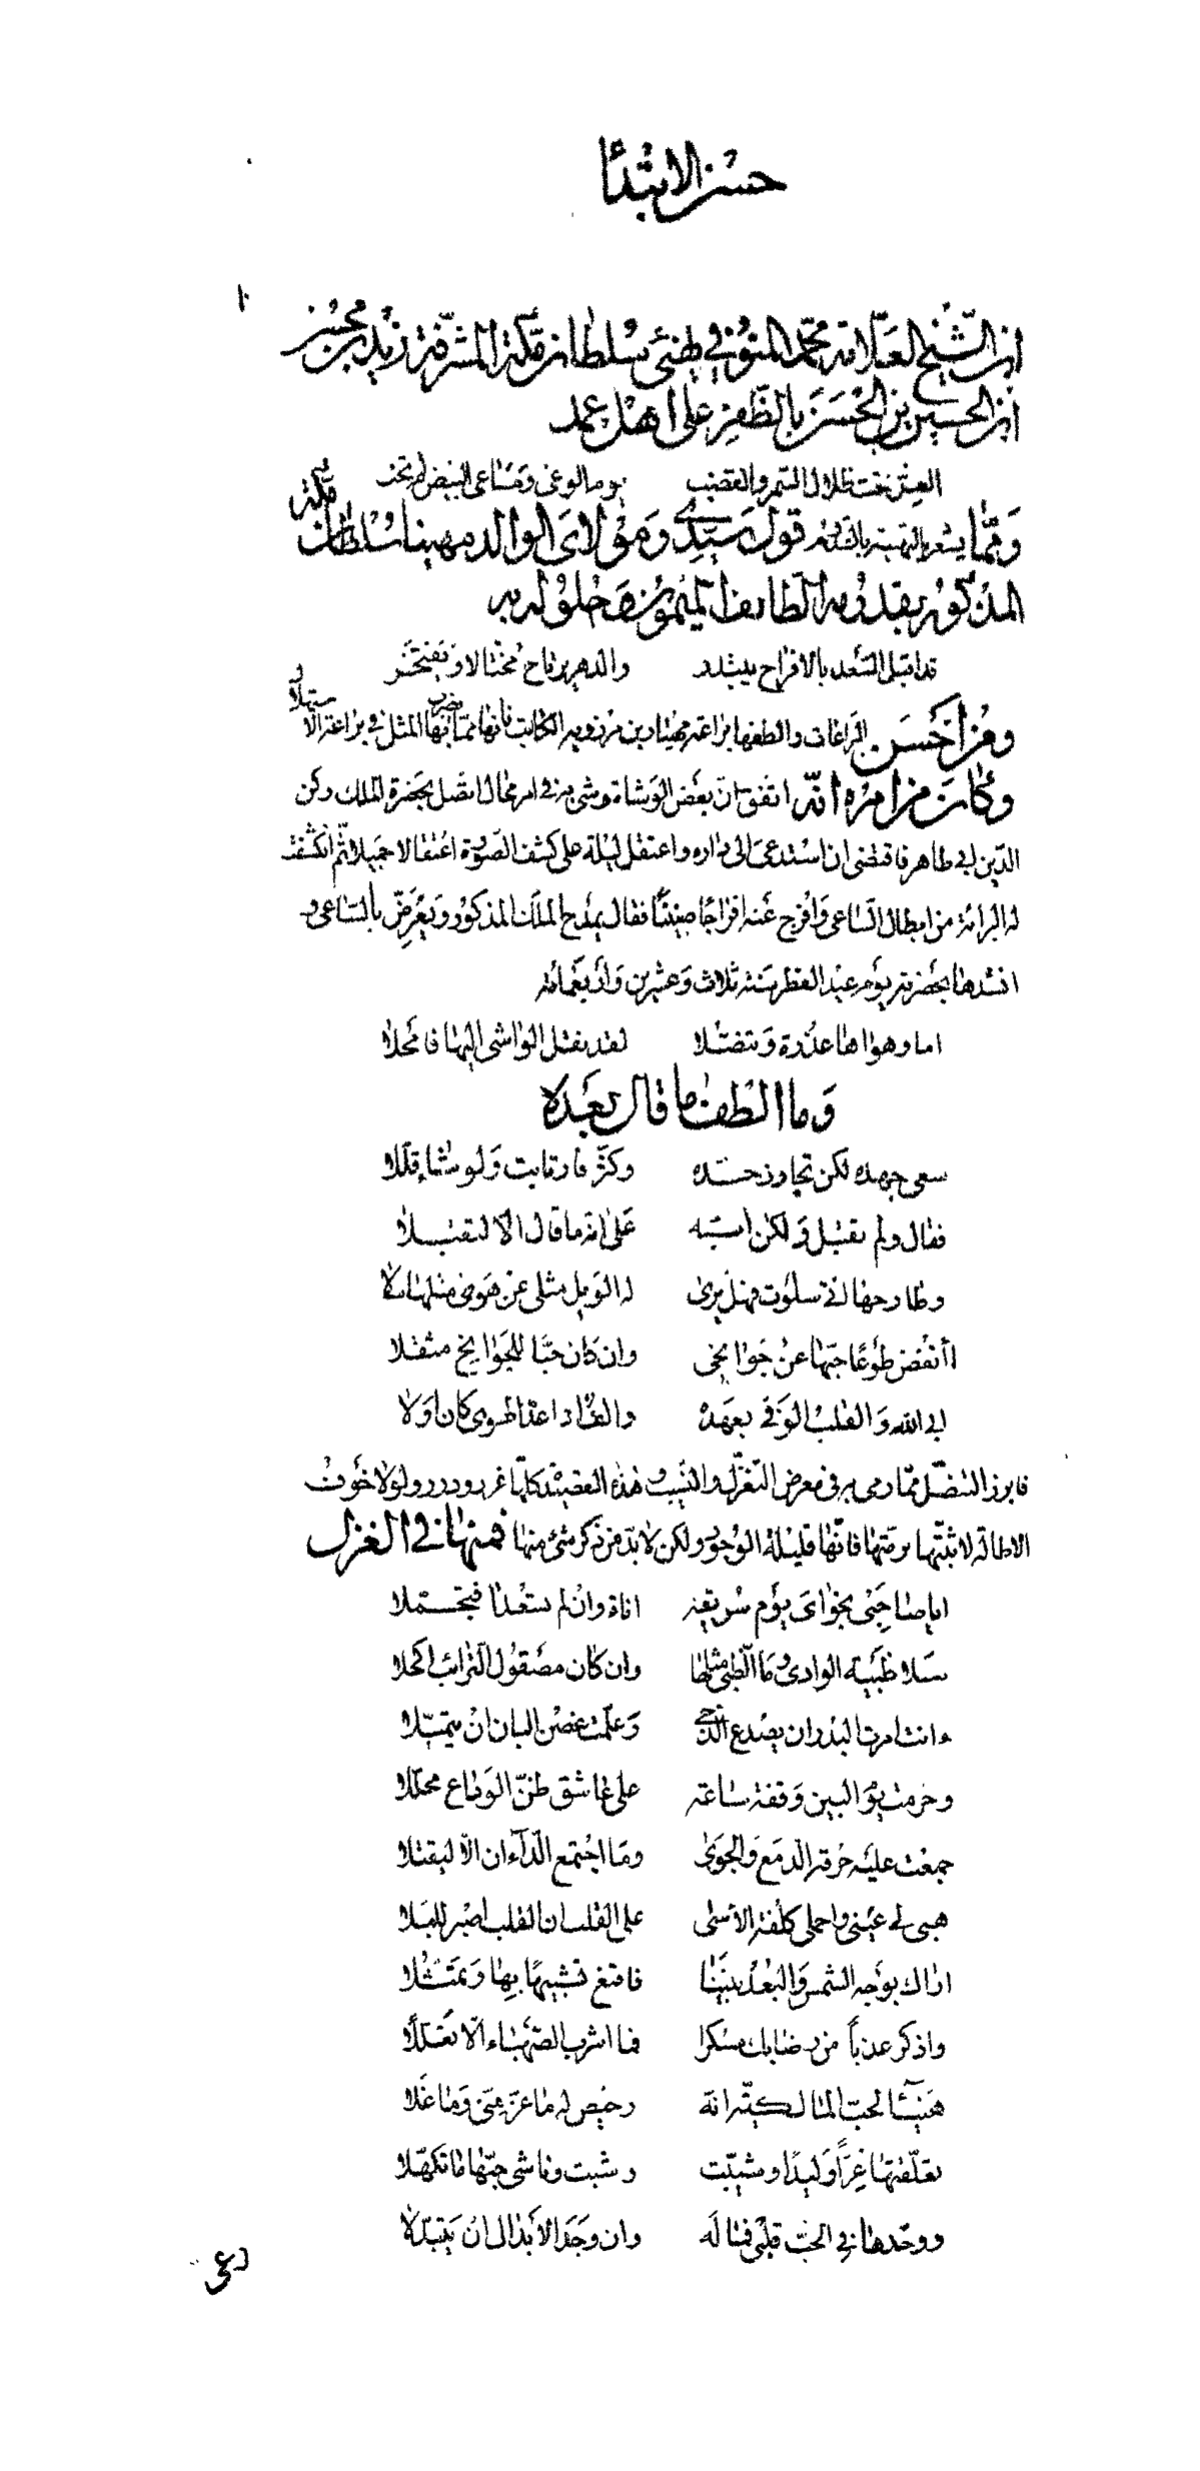 حسن الابتدأ
١٠
ابن الشيخ العلامة محمد المنوفي في تهنئي سلطان مكة المشرفة زيد بن محسن
ابن الحسين بن الحسن بالظفر على اهل عمد
العيش تحت ظلال السمر والقضب يوم الوغى ومساعى البيض لم تخب
ومما يشعر بالتهنية بالقدوم قول سيدي ومولاى الوالد مهنيا سلطان مكة
المذكور بقدومه الطايف الميمون وحلوله به
قد اقبل السعد بالافراح يبتدر والدهر يرتاح مختالا ويفتخر
ومن احسن البراعات والطفها براعة مهيار بن مرزويه الكاتب فانها مما يضرب بها المثل في براعة الاستهلال
وكان من امره انه اتفق ان بعض الوشاة وشى به في امر محال اتصل بحضرة الملك ركن
الدين ابي طاهر فاقتضى ان استدعى الى داره واعتقل ليلة على كشف الصورة اعتقالا جميلا ثم انكشفت
له البرائة من ابطال الساعى وافرج عنه افراجا مبينا فقال يمدح الملك المذكور ويعرض بالساعى و
انشدها بحضرته يوم عيد الفطر سنة ثلاث وعشرين واربعمائة
اما وهواها عذرة وتنصلا لقد نقل الواشى اليها فامحلا
وما الطف ما قال بعده
سعى جهده لكن تجاوز حده وكثر فارتابت ولو شاء قللا
فقال ولم تقبل ولكن اسبه على انه ما قال الا لتقبلا
وطارحها انى سلوت فهل يرى له الويل مثلى عن هوى مثلها سلا
أأنفض طوعا حبها عن جوانحى وان كان حبا للجوانح مثقلا
ابى الله والقلب الوفى بعهده والف اذا عد الهوى كان اولا
فابرز التنصل مما رمى به في معرض التغزل والنسيب وهذه القصيدة كلها غرر ودرر ولولا خوف
الاطالة لاثبتها برمتها فانها قليلة الوجود ولكن لا بد من ذكر شئ منها فمنها في الغزل
ايا صاحبى نجواى يوم سويقة اناة وان لم تسعدا فتجملا
سلا ظبية الوادى وما الظبى مثلها وان كان مصقول الترائب اكحلا
ءانت امرت البدر ان يصدع الدجى وعلمت غصن البان ان يتميلا
وحرمت يوم البين وقفة ساعة على عاشق ظن الوداع محللا
جمعت عليه حرقة الدمع والجوى وما اجتمع الداءان الا ليقتلا
هبى لى عينى واحملى كلفة الأسى على القلب ان القلب اصبر للبلا
اراك بوجه الشمس والبعد بيننا فاقنع تشبيها بها وتمثلا
واذكر عذبا من رضابك مسكرا فما اشرب الصهباء الا تعللا
هنيئا لحب المالكية انه رخيص له ما عز منى وما غلا
تعلقتها غرا وليدا وشيبت وشبت وناشى حبها ما تكهلا
ووحدها في الحب قلبى فما له وان وجد الابدال ان يتبدلا
رعى